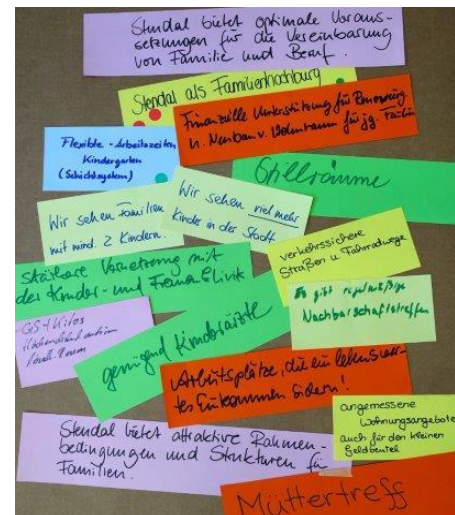 Stendal bietet optimale Voraus-
setzungen für die Vereinbarung
von Familie und Beruf.
Stendal als Familienhochburg
Finanzielle Unterstützung für Renovierg.
u. Neubau v. Wohnraum für jg. Familien
Flexible - Arbeitszeiten
Kindergarten
(Schichtsystem)
Stillräume
Wir sehen Familien
mit mind. 2 Kindern.
Wir sehen viel mehr
Kinder in der Stadt
verkehrssichere
Straßen u. Fahrradwege
Stärkere Vernetzung mit
der Kinder- und Frauenklinik
Es gibt regelmäßige
Nachbarschaftstreffen
GS + Kitas
genügend Kinderärzte
Arbeitsplätze, die ein lebenswer-
tes Einkommen sichern!
angemessene
Wohnungsangebote
auch für den kleinen
Geldbeutel
Stendal bietet attraktive Rahmen-
bedingungen und Strukturen für
Familien.
Müttertreff